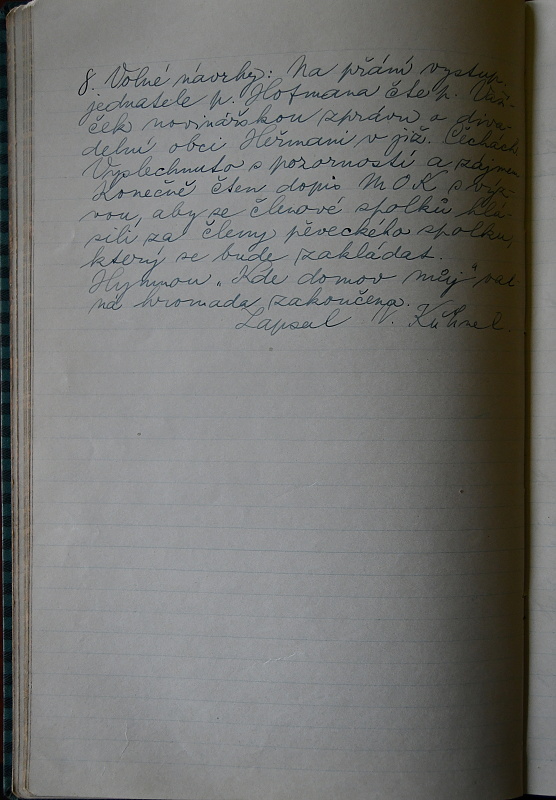 8. Volné návrhy: Na přání vystup.
jednatele p. Hofmana čte p.
ček novinářskou zprávu o diva-
delní obci Heřmani v již. Čechách.
Vyslechnuto s pozorností a zájmem
Konečně čten dopis MOK s výz-
vou, aby se členové spolků hlá-
sili za členy pěveckého spolku,
který se bude zakládat.
Hymnou „Kde domov můj" val-
ná hromada zakončena.
Zapsal V. Kühnel.